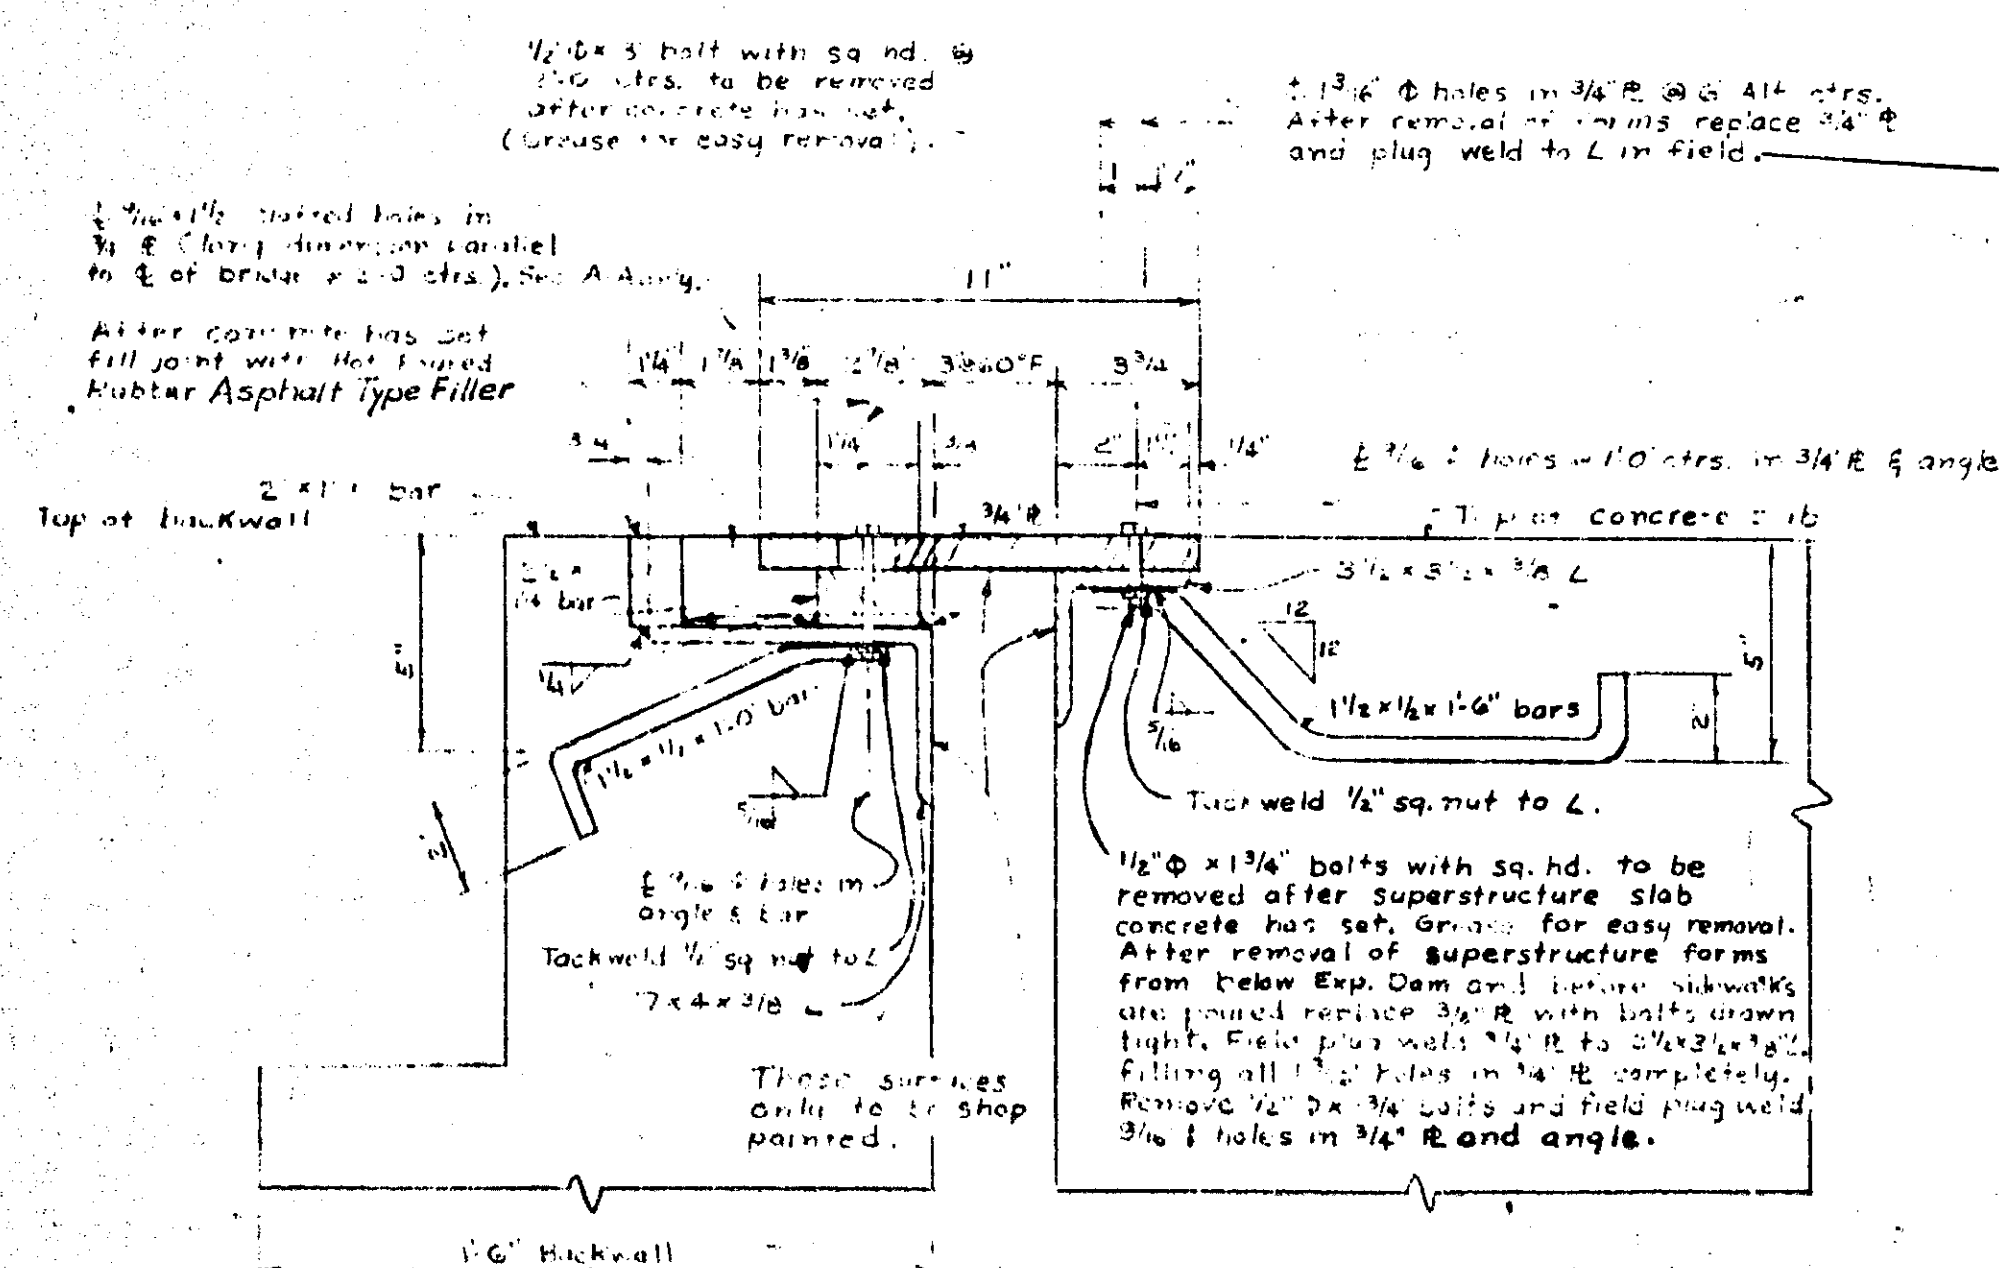 1/2" Φ x 3 bolt with sq hd. @
ctrs. to be removed
after concrete has set.
(Grease for easy removal).
1 3/16" Φ holes in 3/4" ℞ @ 6 Alt ctrs.
After removal of forms replace 3/4" ℞
and plug weld to L in field.
℄ 9/16 x 1 1/2 slotted holes in
3/4 ℞ (long dimension parallel
to ℄ of bridge 2-0 ctrs.). See
After concrete has set
fill joint with Hot Poured
Rubber Asphalt Type Filler
11"
1 1/4 1 7/8 1 3/8 2 7/8 3@60°F 3 3/4
3/4 1 1/4 3/4 2" 1/4"
℄ 9/16 holes 1'0 ctrs. in 3/4 ℞ & angle
2 x 1 bar
Top of backwall
3/4" ℞
Top of concrete slab
bar
3 1/2 x 3 1/2 x 3/8 L
12
12
5"
5"
1/4
1 1/2 x 1/2 x 1-0 bar
1 1/2 x 1/2 x 1'-6" bars
2
5/16
5/16
2"
Tackweld 1/2" sq. nut to L.
℄ 9/16 holes in
angle & bar
Tackweld 1/2 sq nut to L
7 x 4 x 3/8 L
1/2" Φ x 1 3/4" bolts with sq. hd. to be
removed after superstructure slab
concrete has set. Grease for easy removal.
After removal of superstructure forms
from below Exp. Dam and before sidewalks
are poured replace 3/4" ℞ with bolts drawn
tight. Field plug weld 3/4" ℞ to 3 1/2 x 3 1/2 x 3/8" L.
filling all holes in 3/4" ℞ completely.
Remove 1/2" Φ x 1 3/4 bolts and field plug weld
9/16 holes in 3/4" ℞ and angle.
These surfaces
only to be shop
painted.
1'-6" Backwall